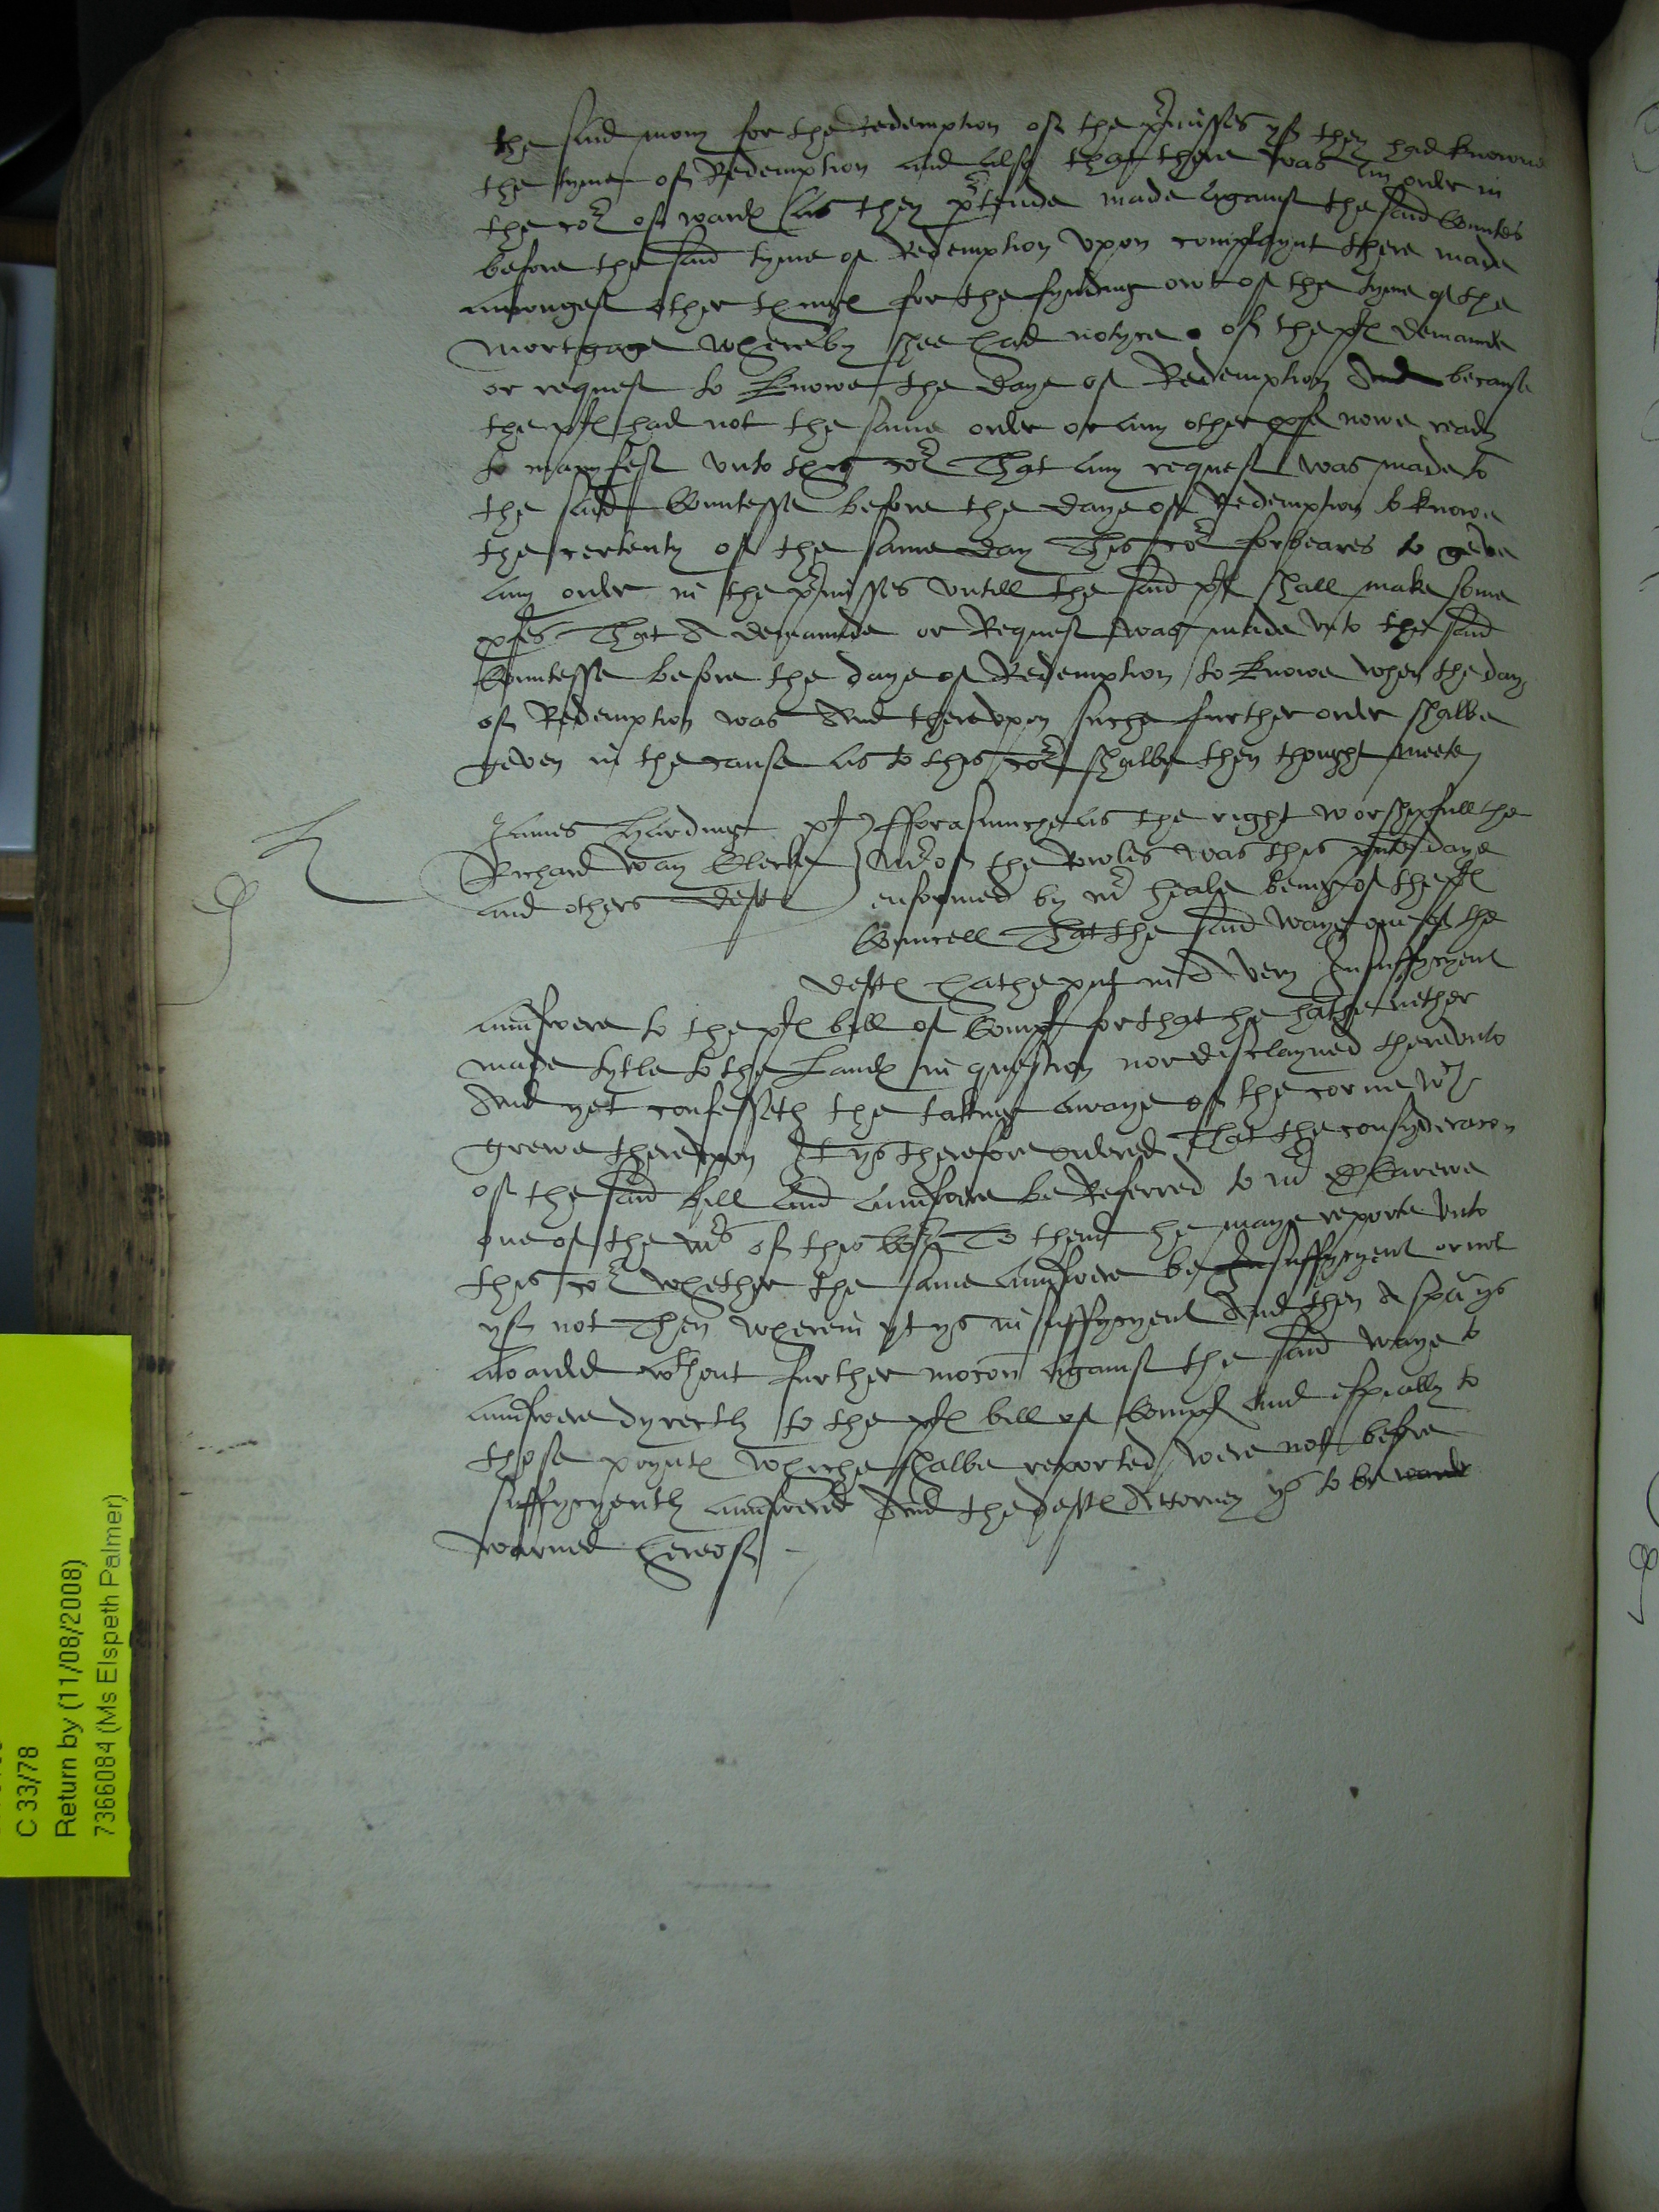 the said mony for the Redemption of the pʳmisses yf they had knowne
the tyme of Redemption and also that there was an order in
the coʳ of wardℓ as they pʳtende made against the said Countes
before the said tyme of Redemption vpon complaynt there made
amongest other thingℓ for the fynding owt of the tyme of the
mortgage whereby shee had notyce of the plℓ demaunde
or request to knowe the daye of Redemption And because
the plℓ had not the same order or any other pfe nowe ready
to manyfest vnto this coʳ That any request was made to
the said Countesse before the daye of Redemption to knowe
the certenty of the same day This coʳ forbeares to geve
any order in the pʳmisses vntill the said pl shall make some
pfes That A demaunde or Request was made vnto the said
Countesse before the daye of Redemption to knowe when the day
of Redemption was And therevpon suche further order shalbe
geven in the cause as to this coʳ shalbe then thought meete
H
James Harding pl
Richard Way Clerke
and others deftℓ
Fforasmuche as the right worshipfull the
Mʳ of the Rowles was this pnte daye
enformed by mʳ heale being of the plℓ
Councell That the said Waye one of the
deftℓ hathe put in A very Insuffycyent
aunswere to the plℓ bill of Compl for that he hathe nether
made tytle to the Landℓ in question nor disclaymed therevnto
And yet confesseth the taking awaye of the corne wᶜʰ
grewe therevpon It ys therefore ordered That the consyderacon
of the said bill and aunswere be Referred to mʳ D Carewe
one of the mʳˢ of this Coʳ To thend he maye reporte vnto
this coʳ whether the same aunswere be Insuffycyent or not
yf not Then wherein yt ys insuffycyent And then A spa ys
awarded wᵗʰout further mocon against the said waye to
aunswere dyrectly to the plℓ bill of Compl and espially to
those poyntℓ whiche shalbe reported were not before
suffycyently aunswered And the deftℓ Attorney ys to be warde
warned hereof
C 33/78
Return by (11/08/2008)
7366084 (Ms Elspeth Palmer)